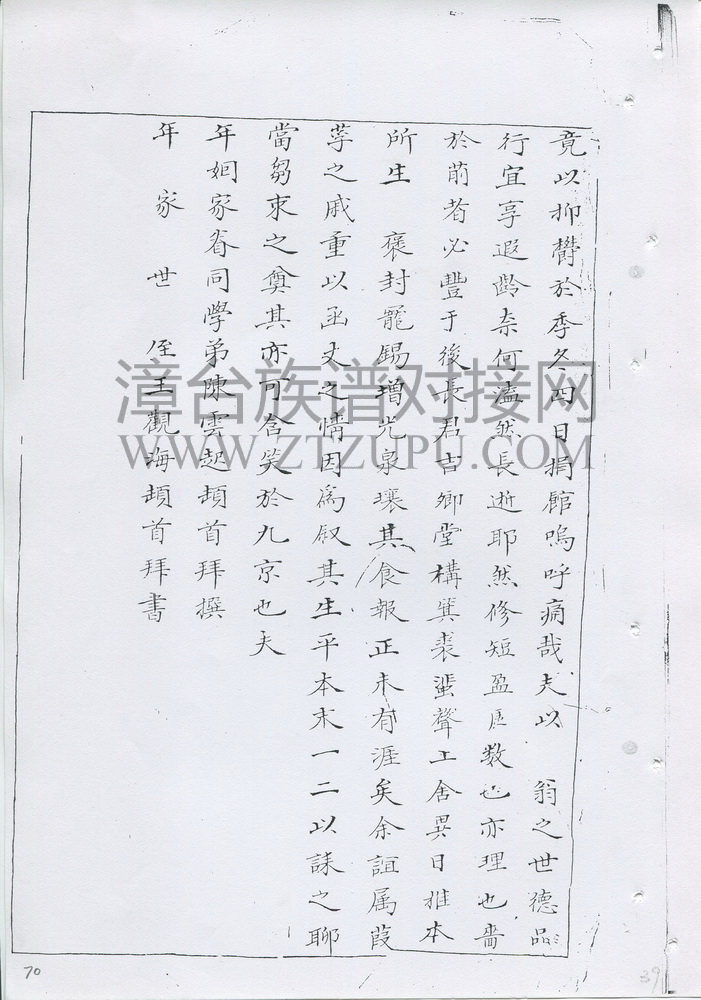 竟以抑欝於季冬四日捐館嗚呼痛哉夫以 翁之世德品
行宜享遐齡奈何溘然長逝耶然修短盈虛数也亦理也嗇
於前者必豐于後長君吉卿堂構箕裘蜚聲上舍異日推本
所生 褒封寵錫增光泉壤其食報正未有涯矣余誼属葭
莩之戚重以函丈之情因為叙其生平本末一二以誄之聊
當芻束之奠其亦可含笑於九京也夫
年姻家眷同學弟陳雲起頓首拜撰
年家世侄王觀海頓首拜書
漳台族谱对接网
WWW.ZTZUPU.COM
70
39